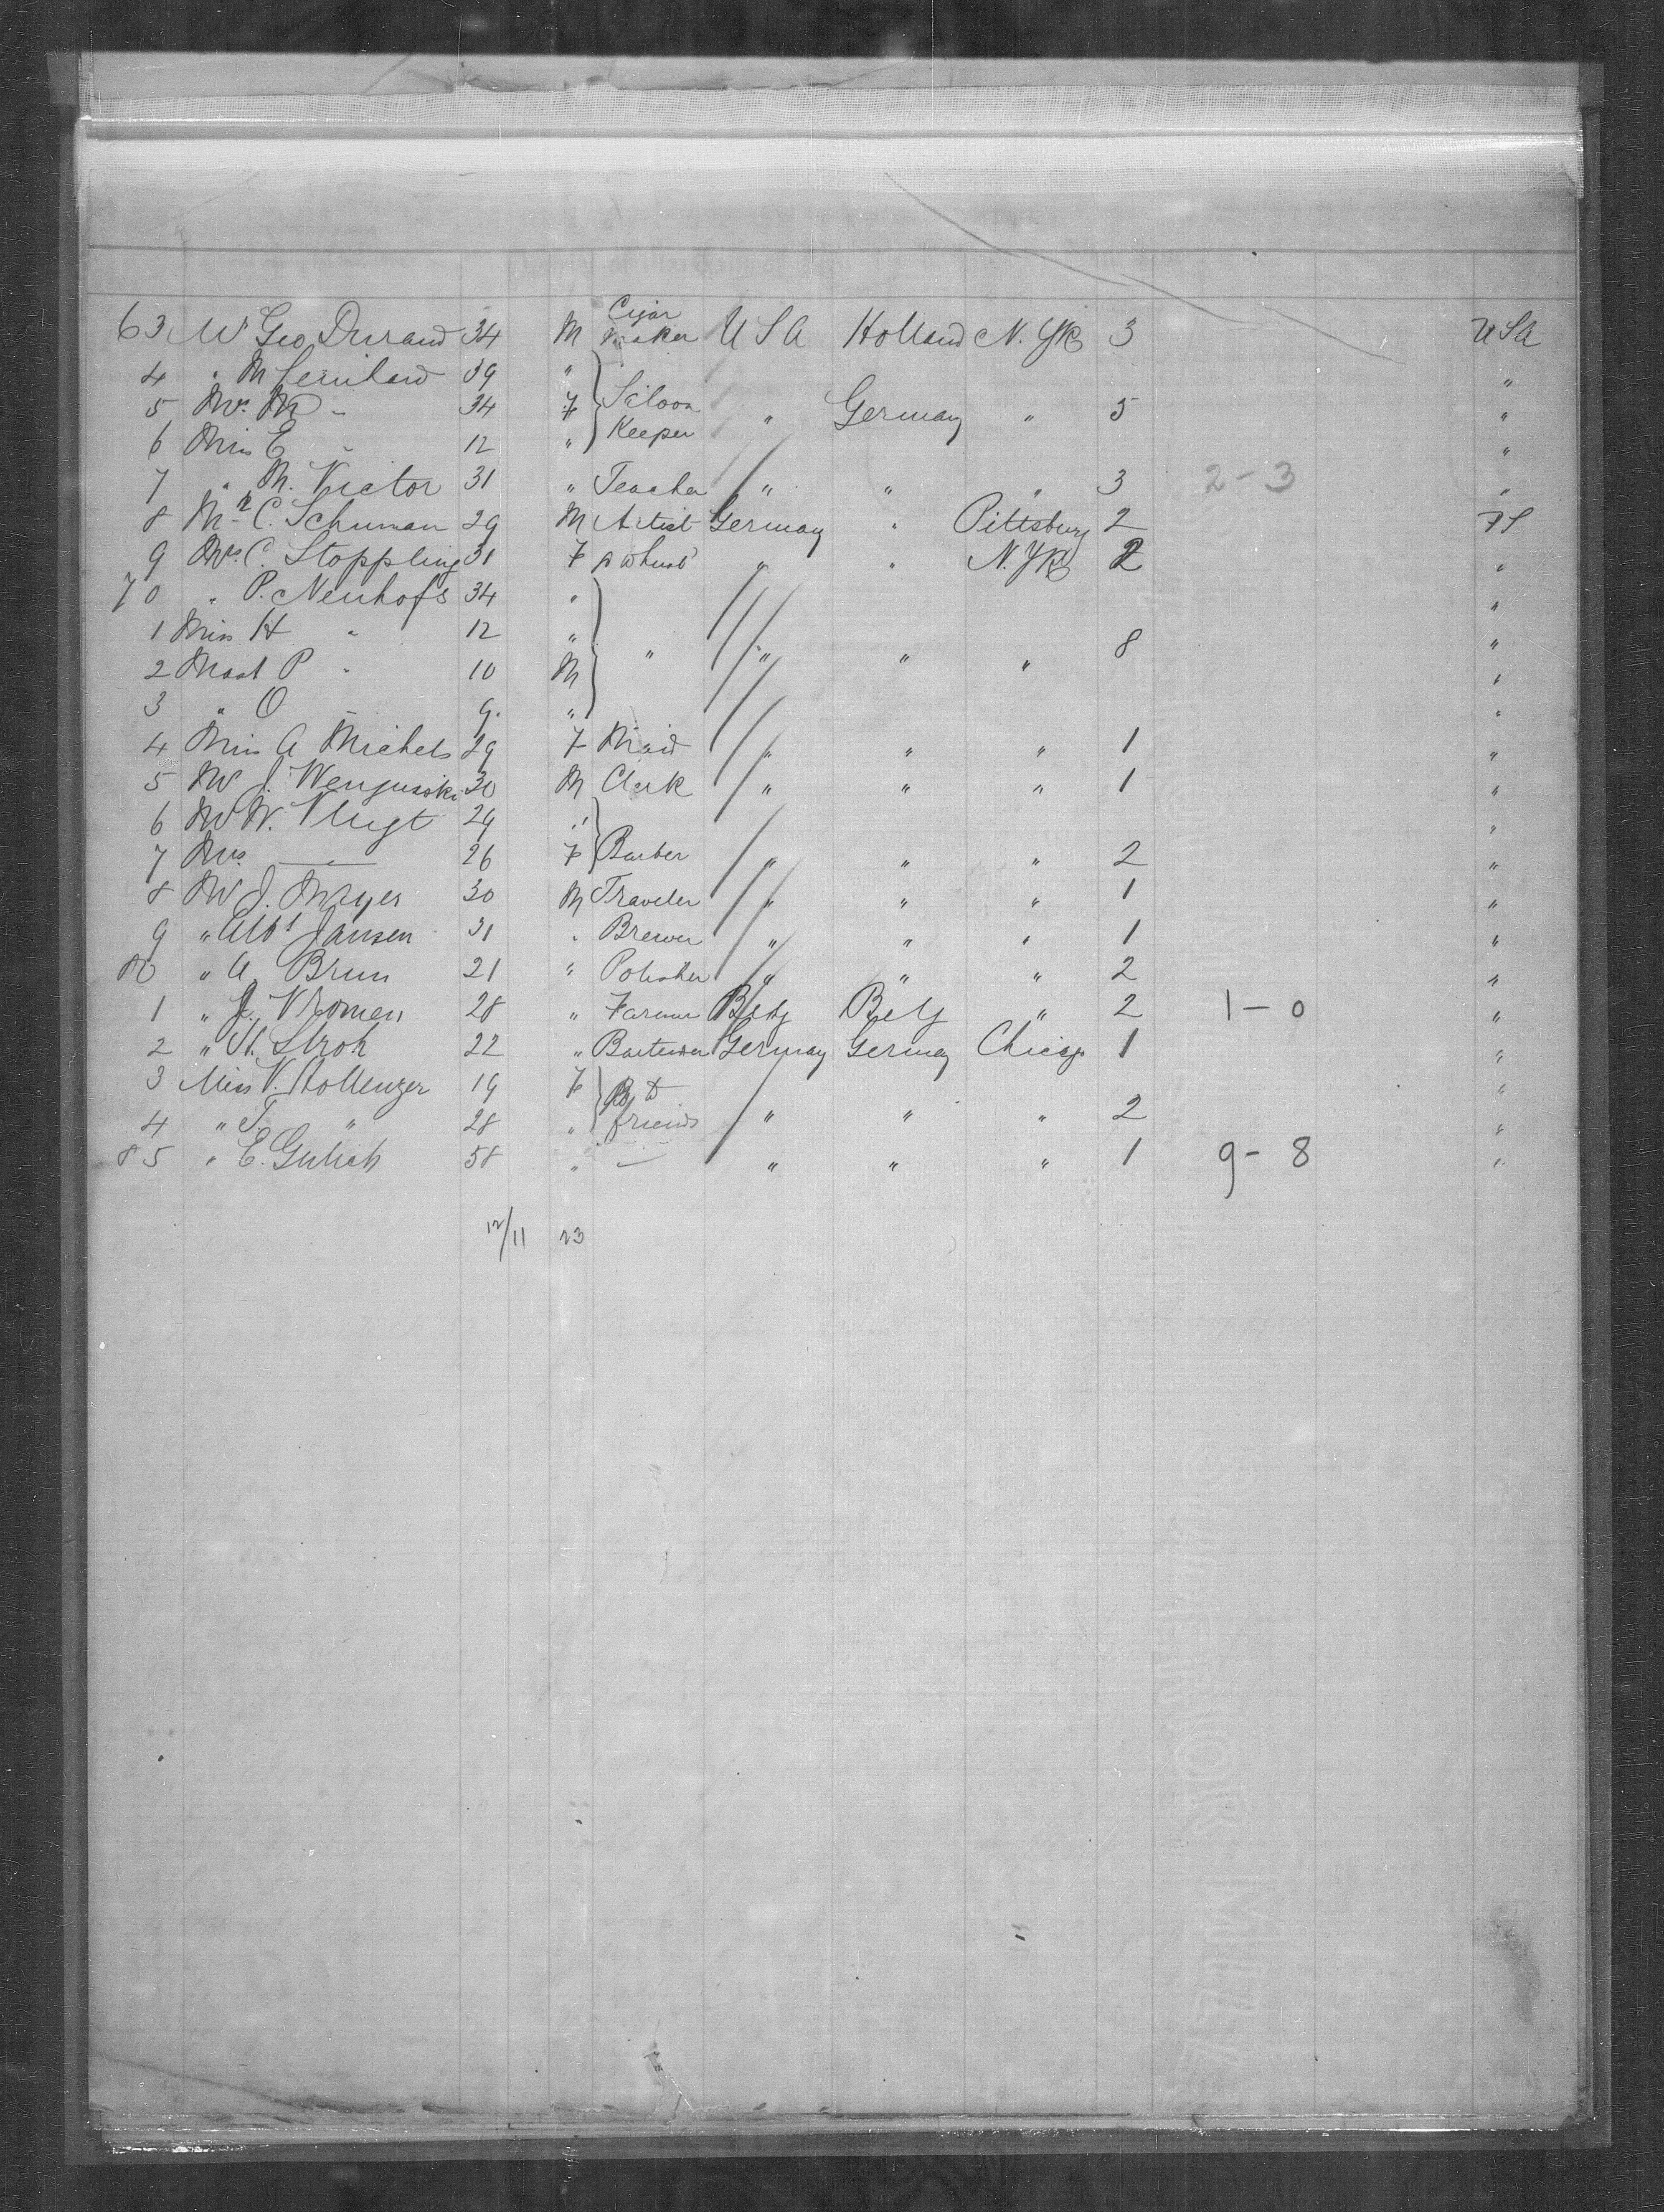 63 Mr Geo Durand 34 M Cigar Maker U S A Holland N. Yk 3 USA
4 " M Leinhard 39 " "
5 Mrs M " 34 F Saloon Keeper " Germany " 5 "
6 Miss E " 12 " "
7 " M. Victor 31 " Teacher " " " 3 2-3 "
8 Mr C. Schuman 29 M Artist Germany " Pittsburg 2 FS
9 Mrs C. Stoppling 31 F " " N. Yk 2 "
70 " P. Neuhofs 34 " "
1 Miss H " 12 " " " " " 8 "
2 Mast P " 10 M "
3 " O " 9. " "
4 Miss A Michels 29 F Maid " " " 1 "
5 Mr J. 30 M Clerk " " " 1 "
6 Mr W. Vlugt 29 " "
7 Mrs — " — 26 F Barber " " " 2 "
8 Mr J. Mayer 30 M Traveler " " " 1 "
9 " Albt Jansen 31 " Brewer " " " 1 "
80 " A Brun 21 " Polisher " " " 2 "
1 " J. Vromen 28 " Farmer Belg Belg " 2 1-0 "
2 " St. Stroh 22 " Bartender Germany Germany Chicago 1 "
3 Miss V. Hollenzer 19 F "
4 " T. " 28 " to friends " " " 2 "
85 " E. Gulich 58 " — " " " 1 9-8 "
12/11 23